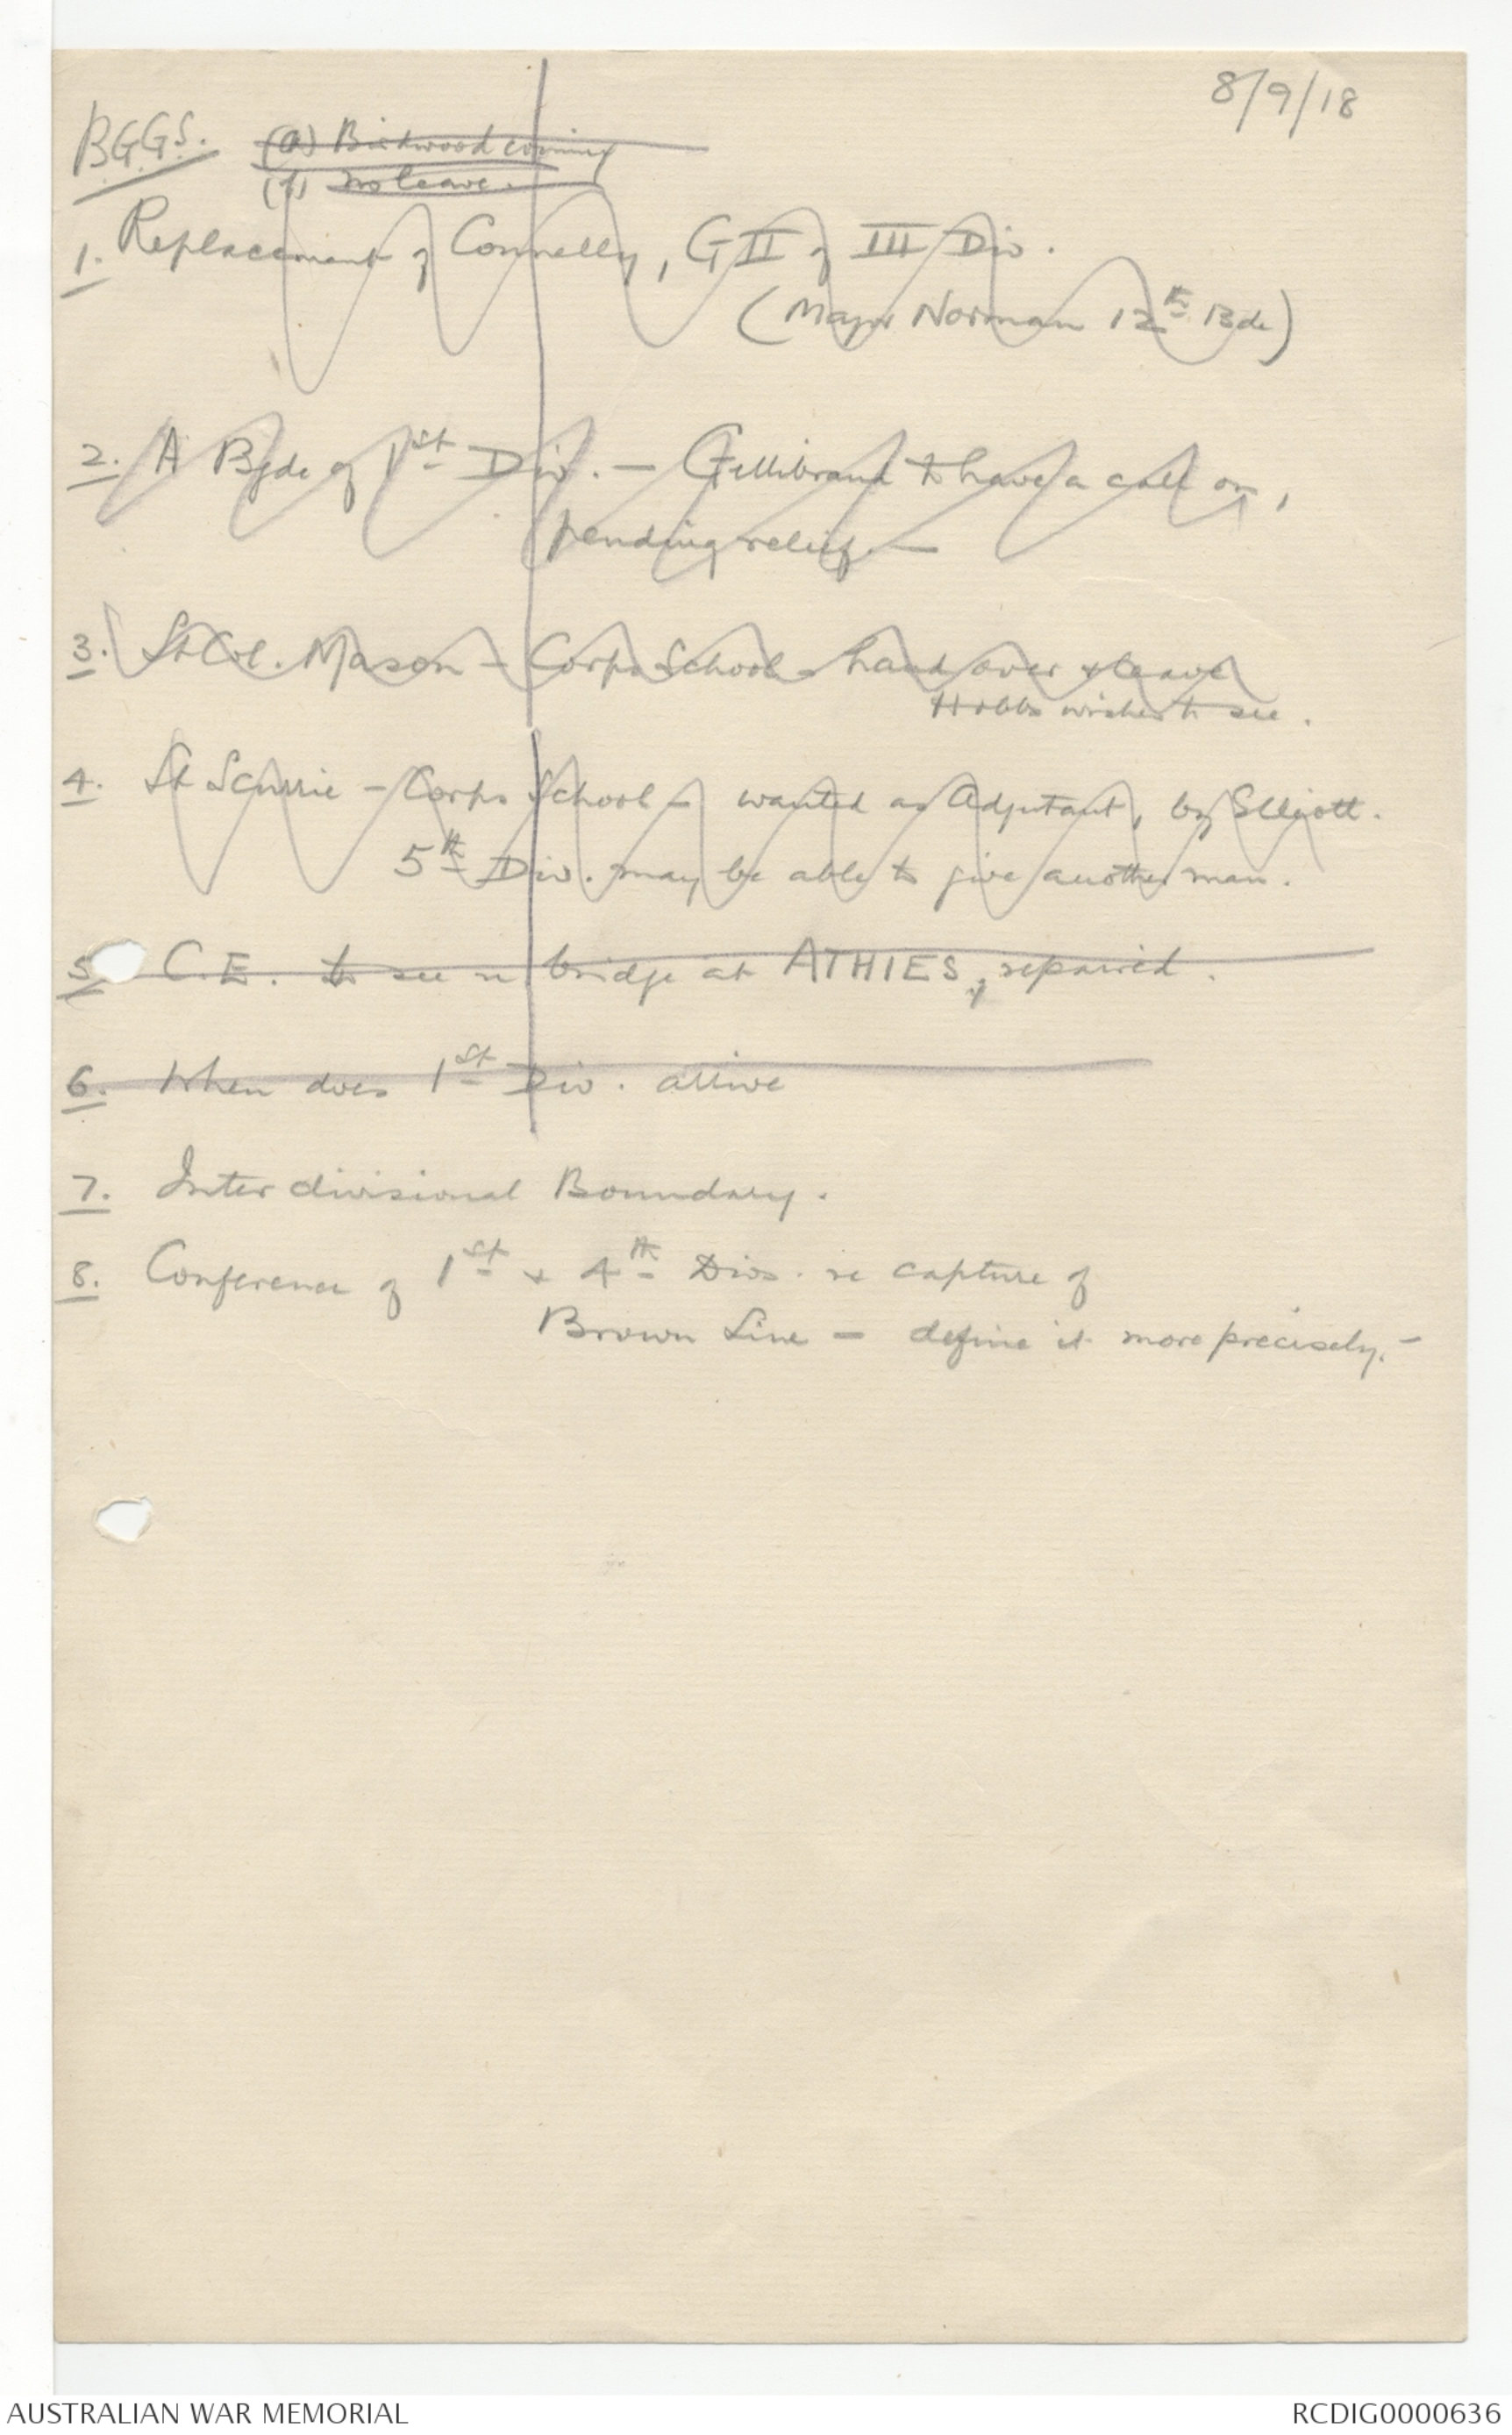 8/9/18
B.G.G.S. (a) Birdwood coming
(b) no leave.
1. Replacement of Connelly, G II of III Div.
(Major Norman 12th Bde)
2. A Bgde of 1st Div. — Gellibrand to have a call on,
pending relief. —
3. Lt Col. Mason - Corps School - hand over & leave
Hobbs wishes to see.
4. Lt Scurrie - Corps School - wanted as Adjutant, by Elliott.
5th Div. may be able to give another man.
5. C.E. to see re bridge at ATHIES, repaired.
6. When does 1st Div. arrive
7. Inter divisional Boundary.
8. Conference of 1st & 4th Divs. re capture of
Brown Line - define it more precisely. -
AUSTRALIAN WAR MEMORIAL
RCDIG0000636